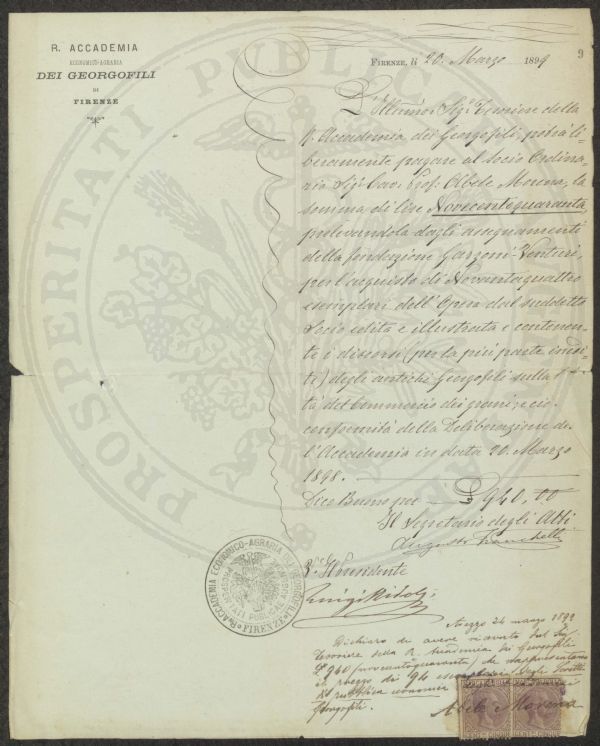 R. ACCADEMIA
ECONOMICO-AGRARIA
DEI GEORGOFILI
DI
FIRENZE
FIRENZE, li 20. Marzo 1899
9
L'Illmo Sigr. Tesoriere della
R. Accademia dei Georgofili, potrà li-
beramente pagare al Socio Ordina-
rio Sigr. Cav. Prof. Abele Morena, la
somma di lire Novecentoquaranta,
prelevandola dagli assegnamenti
della fondazione Garzoni-Venturi,
per l'acquisto di Novantaquattro
esemplari dell'Opera dal suddetto
Socio edita e illustrata e contenen-
te i discorsi (per la più parte inedi-
ti) degli antichi Georgofili sulla
tà del Commercio dei grani, e ciò
conformità della Deliberazione de.
l'Accademia in data 20. Marzo
1898.
Dico Buono per £ 940.00
Il Segretario degli Atti
Augusto Franchetti
Vo. Il Presidente
Luigi Ridolfi
R. ACCADEMIA ECONOMICO-AGRARIA DEI GEORGOFILI
FIRENZE
PROSPERITATI PUBLICAE
Arezzo 24 marzo 1899
Dichiaro di avere ricevuto dal Sig.
Tesoriere della R. Accademia dei Georgofili
£ 940 (novecentoquaranta) che rappresentano
il prezzo di 94 esemplari degli Scritti
di pubblica economia
Georgofili.
Abele Morena
PROSPERITATI PUBLICAE